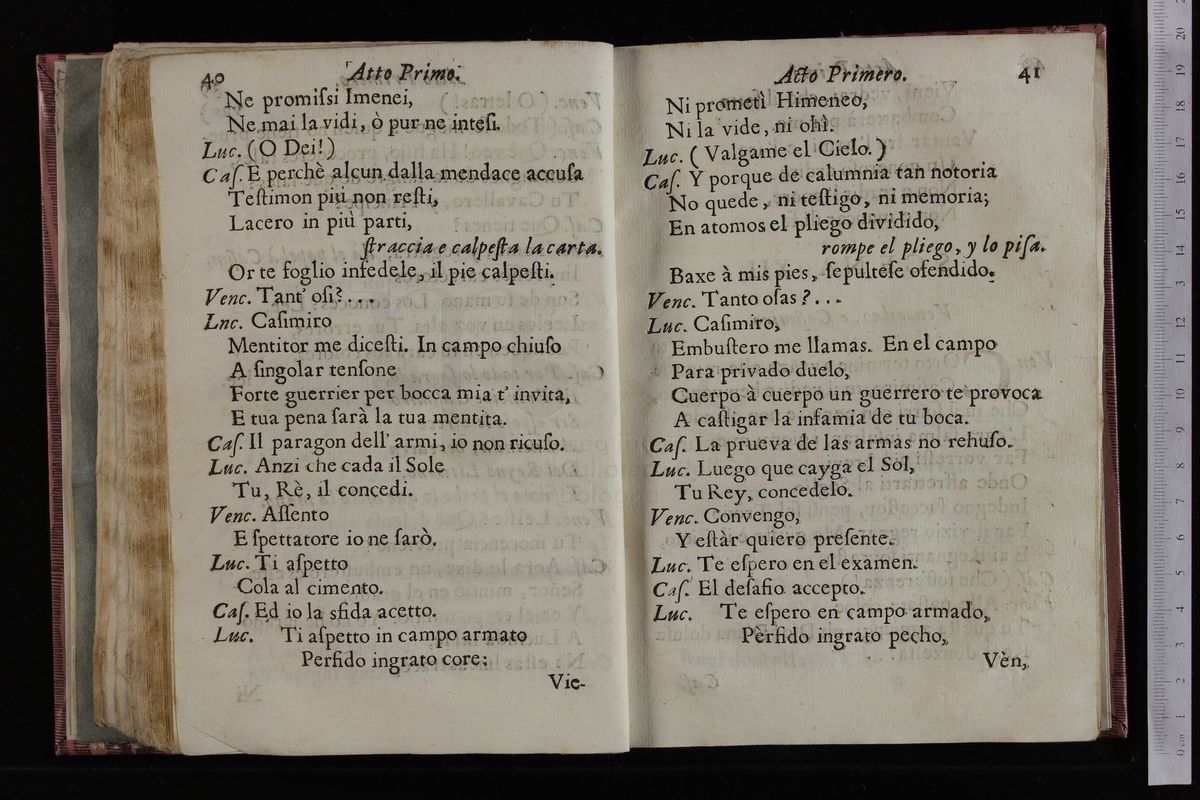 40 Atto Primo.
Ne promiſsi Imenei,
Ne mai la vidi, ò pur ne inteſi.
Luc. (O Dei!)
Caſ. E perchè alcun dalla mendace accuſa
Teſtimon più non reſti,
Lacero in più parti,
ſtraccia e calpeſta la carta.
Or te foglio infedele, il pie calpeſti.
Venc. Tant' oſi? . . .
Lnc. Caſimiro
Mentitor me diceſti. In campo chiuſo
A ſingolar tenſone
Forte guerrier per bocca mia t' invita,
E tua pena ſarà la tua mentita.
Caſ. Il paragon dell' armi, io non ricuſo.
Luc. Anzi che cada il Sole
Tu, Rè, il concedi.
Venc. Aſſento
E ſpettatore io ne ſarò.
Luc. Ti aſpetto
Cola al cimento.
Caſ. Ed io la sfida acetto.
Luc. Ti aſpetto in campo armato
Perfido ingrato core;
Vie-
Acto Primero. 41
Ni prometì Himeneo,
Ni la vide, ni ohì.
Luc. ( Valgame el Cielo. )
Caſ. Y porque de calumnia tan notoria
No quede, ni teſtigo, ni memoria;
En atomos el pliego dividido,
rompe el pliego, y lo piſa.
Baxe à mis pies, ſepulteſe ofendido.
Venc. Tanto oſas ? . . .
Luc. Caſimiro,
Embuſtero me llamas. En el campo
Para privado duelo,
Cuerpo à cuerpo un guerrero te provoca
A caſtigar la infamia de tu boca.
Caſ. La prueva de las armas no rehuſo.
Luc. Luego que cayga el Sol,
Tu Rey, concedelo.
Venc. Convengo,
Y eſtàr quiero preſente.
Luc. Te eſpero en el examen.
Caſ. El deſafio accepto.
Luc. Te eſpero en campo armado,
Pèrfido ingrato pecho,
Vèn,